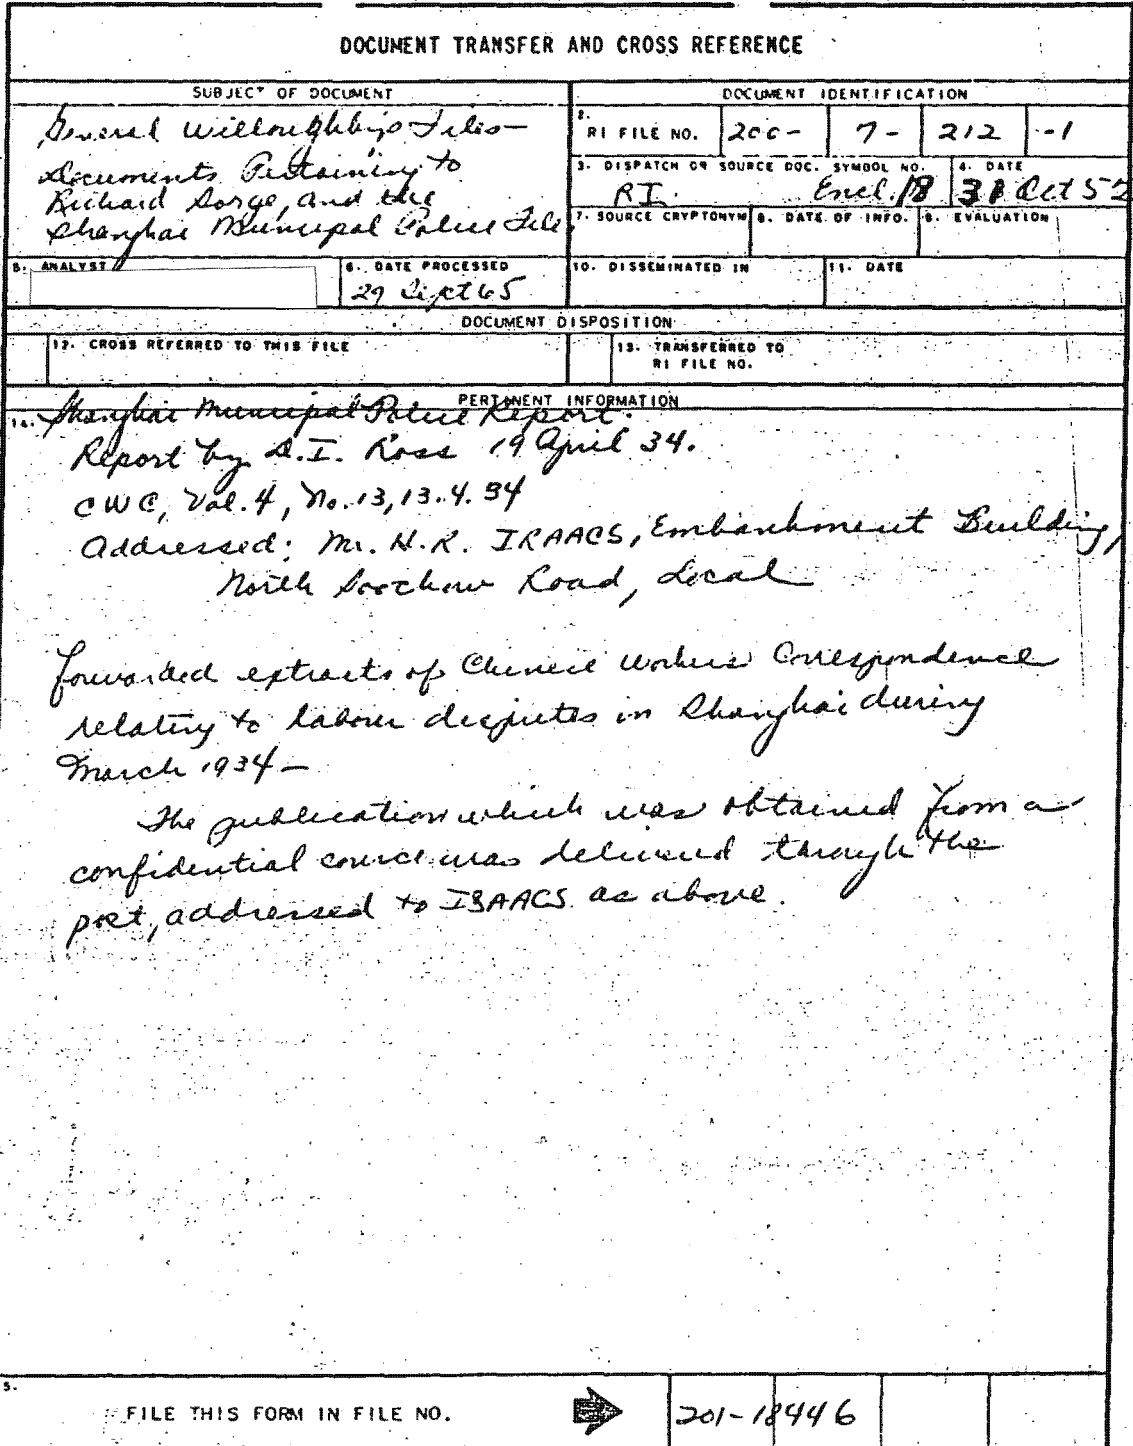 DOCUMENT TRANSFER AND CROSS REFERENCE
SUBJECT OF DOCUMENT
General Willoughby's Files—
Documents Pertaining to
Richard Sorge, and the
Shanghai Municipal Police Files
DOCUMENT IDENTIFICATION
2. RI FILE NO. 200- 7- 212 -1
3. DISPATCH OR SOURCE DOC. SYMBOL NO.
RI. Encl. 18
4. DATE
31 Oct 52
7. SOURCE CRYPTONYM
8. DATE OF INFO.
9. EVALUATION
5. ANALYST
6. DATE PROCESSED
29 Sept 65
10. DISSEMINATED IN
11. DATE
DOCUMENT DISPOSITION
12. CROSS REFERRED TO THIS FILE
13. TRANSFERRED TO
RI FILE NO.
PERTINENT INFORMATION
14. Shanghai Municipal Police Report.
Report by D.I. Ross 19 April 34.
CWC, Vol. 4, No. 13, 13.4.34
Addressed: Mr. H.R. ISAACS, Embankment Building,
North Soochow Road, Local
forwarded extracts of Chinese Workers Correspondence
relating to labour disputes in Shanghai during
March 1934—
The publication which was obtained from a
confidential source was delivered through the
post, addressed to ISAACS as above.
5.
FILE THIS FORM IN FILE NO.
201-18446